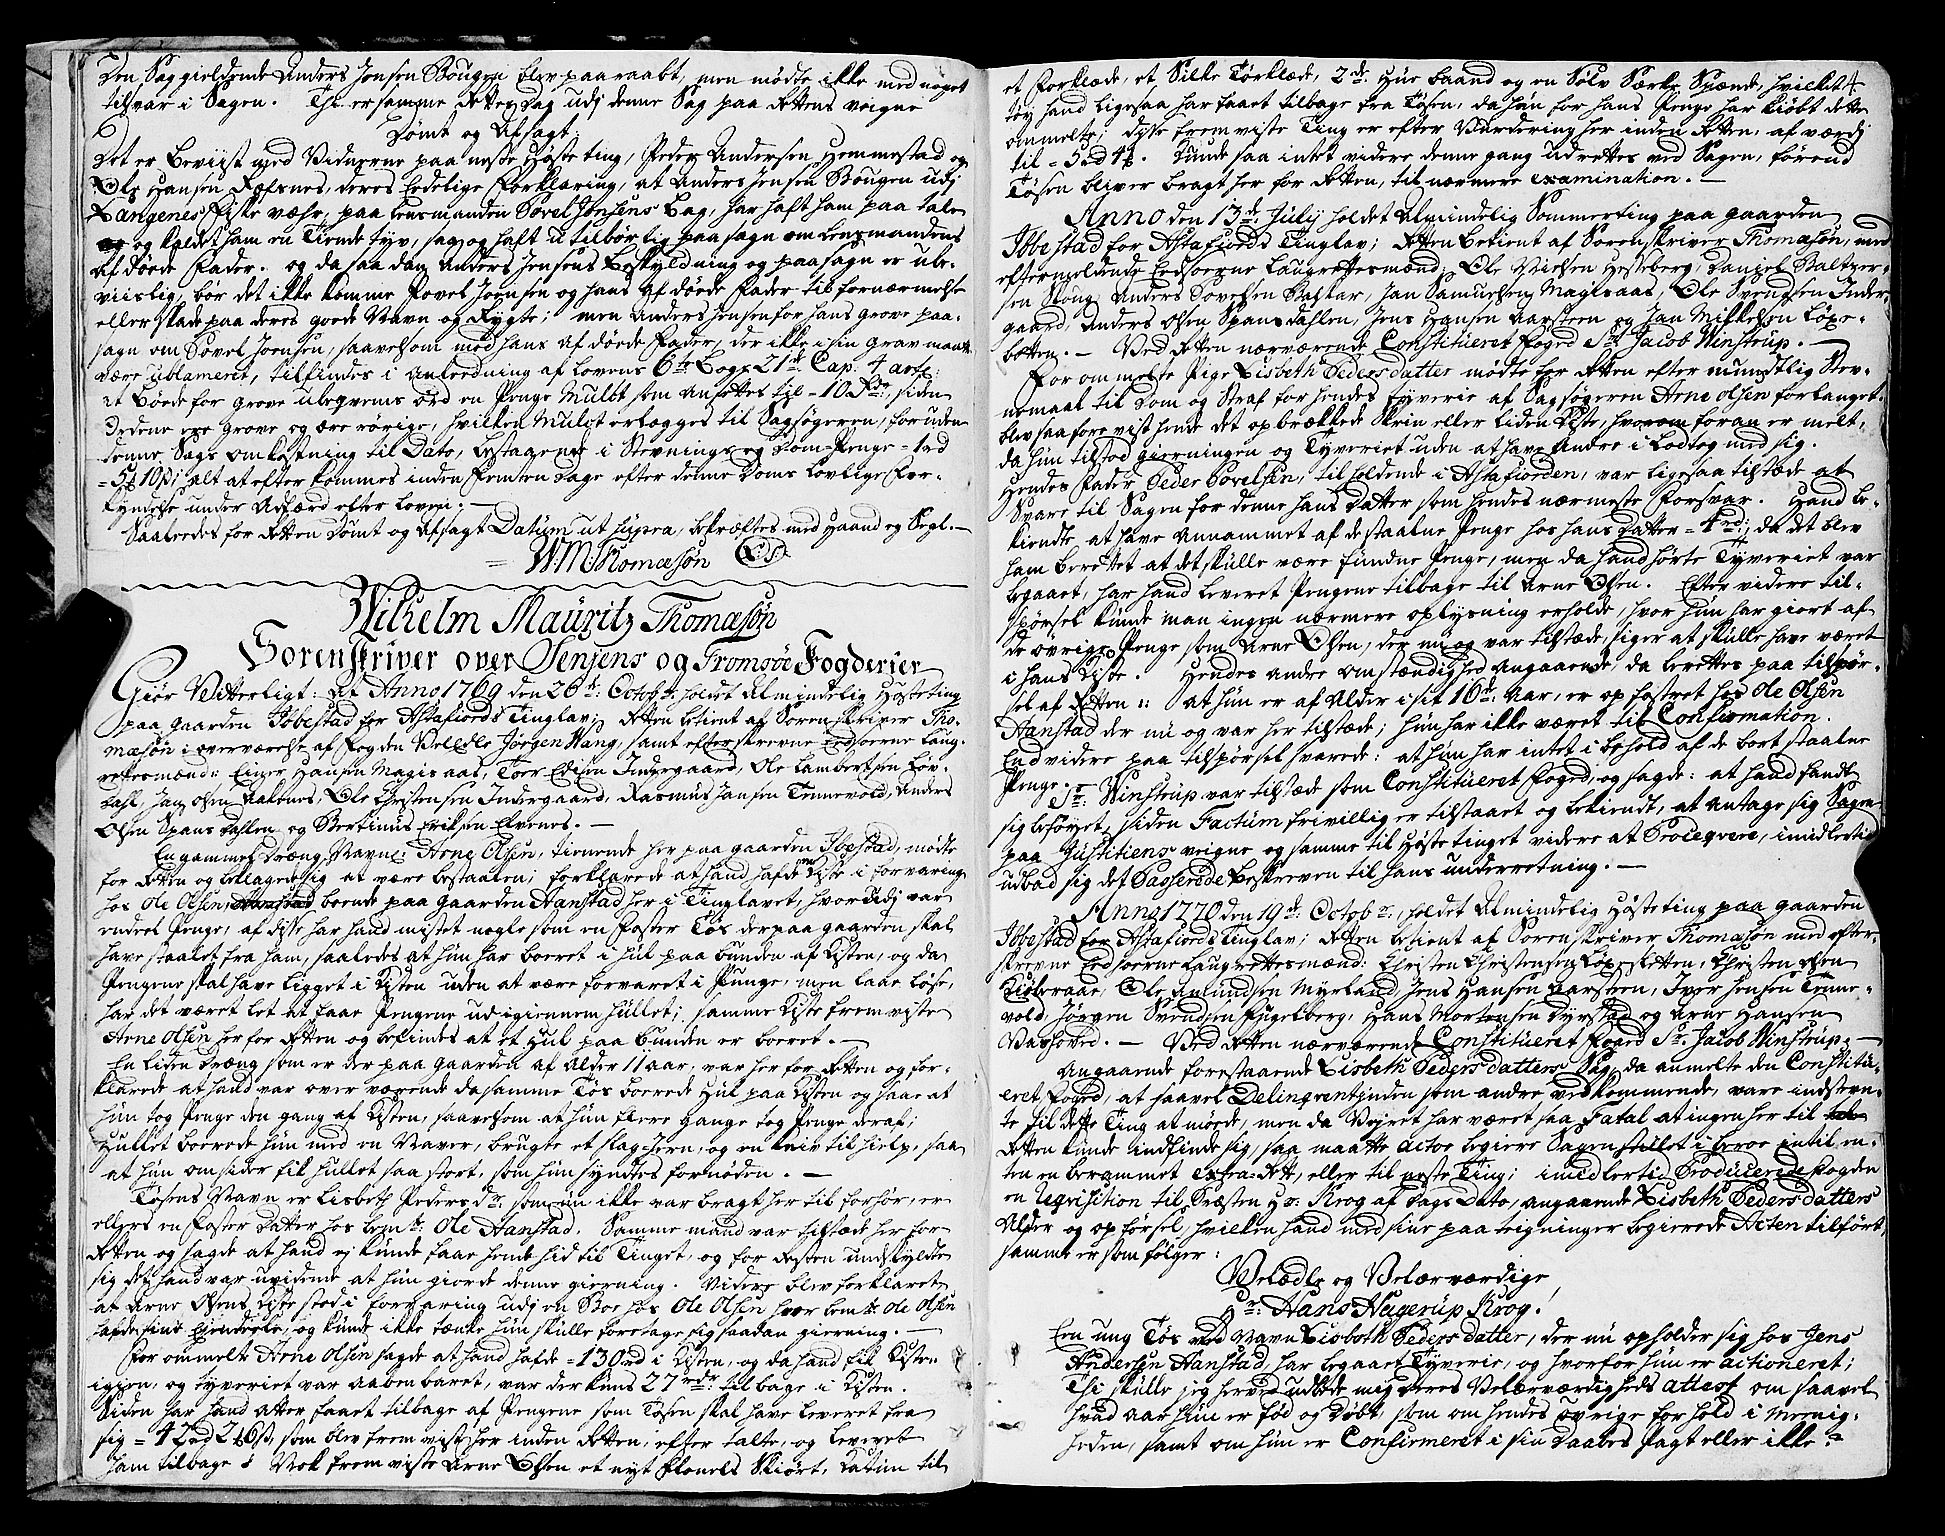 Den Sag gieldende Anders Jensen Bougen blev paaraabt, men mødte ikke med noget
tilsvar i Sagen. Thi er samme Rettes Dag udj denne Sag paa Rettens veigne
Dømt og Afsagt:
Det er beviist med Vidnerne paa neste Høste ting, Peder Andersen Hemmestad og
Ole Hansen Refsnes, deres Eedelige Forklaring, at Anders Jensen Bougen udj
Langenes Fiske væhr, paa Lensmanden Povel Joensens bag, har haft ham paa tale
og kaldet ham en Tiende tyv, sag og haft utilbørlig paasagn om Lensmandens
Afdøde Fader. og da saadan Anders Jensens Beskyldning og paasagn er ube-
viislig, bør det ikke komme Povel Joensen og hans Afdøde Fader til fornærmelse
eller skade paa deres goede Navn og Rygte; men Anders Jensen for hans grove paa-
sagn om Povel Joensen, saavelsom med hans afdøde Fader, der ikke i sin Grav maatte
være ublameret, tilfindes i anledning af Lovens 6te Bogs 21de Cap: 4 art:
at bøde for grove ubeqvems ord en Penge Mulct som ansettes til 10 Rdr, siden
Ordene ere grove og ære rørige, hvilken Mulct erlegges til Sagsøgeren, foruden
denne Sags omkostning til Dato, bestaaende i Stevnings og Dom-Penge 1 rd
5 ₰ 10 s; alt at efterkommes inden Femten dage efter denne Doms Lovlige For-
kyndelse under Adfærd efter Loven:
Saaledes for Retten Dømt og Afsagt Datum ut supra, bekræftes med Haand og Segl.
WM: Thomæsøn (L.S.)
Wilhelm Mauritz Thomæsøn
Sorenskriver over Senjens og Tromsøe Fogderier
Giør Vitterligt: At Anno 1769 den 26de: Octobr: holdt Almindelig Høsteting
paa gaarden Ibbestad for Astafiords Tinglav; Retten betient af Sorenskriver Tho-
mæsøn i overværelse af Fogden Velædle Jørgen Wang, samt efterskrevne Eedsoerne Laug-
rettesmænd: Einer Hansen Magisaas, Toer Edisen Indergaard, Ole Lambertsen Løv-
dahl, Jan Olsen Aalones, Ole Christensen Indergaard, Rasmus Jansen Tennevold, Anders
Olsen Spansdahlen og Bertinus Eriksen Elvenes.
En gammel Dræng, Navne: Arne Olsen, tienende her paa gaarden Ibestad, mødte
for Retten og beklagede sig at være bestaalen; forklarede at hand hafde Kiste i forvaring
hos Ole Olsen, boende paa gaarden Aanstad her i Tinglavet, hvorudj var
endeel Penge, af disse har hand mistet nogle som en Foster Tøs der paa gaarden skal
have staalet fra ham, saaledes at hun har boeret i hul paa bunden af Kisten, og da
Pengene skal have ligget i Kisten uden at være forvaret i Punge, men laae løse,
har det været let at faae Pengene ud igiennem hullet; samme Kiste fremviste
Arne Olsen her for Retten og befindes at et Hul paa bunden er boeret.
En liden Dræng som er der paa gaarden af Alder 11 aar, var her for Retten og for-
klarede at hand var overværende da samme Tøs boerede hul paa Kisten og saae at
hun tog Penge den gang af Kisten, saavelsom at hun flere gange tog Penge deraf;
Hullet boerede hun med en Naver, brugte et Slag-Jern, og en kniv til hielp, saa
at hun omsider fik hullet saa stort, som hun syndtes fornøden.
Tøsens Navn er Lisbeth Pedersdr som nu ikke var bragt her til forhør, er
ellers en Foster datter hos bem:te Ole Aanstad. Samme mand var tilstede her for
Retten og sagde at hand ej kunde faae hende hid til Tinget, og for Resten undskyldte
sig det hand var uvidende at hun giorde denne gierning. Videre blev forklaret
at Arne Olsens Kiste stod i forvaring udj en Boe hos Ole Olsen hvor bem:te Ole Olsen
hafde sine Eyendeele, og kunde ikke tænke hun skulle foretage sig saadan gierning.
Forommelte Arne Olsen sagde at hand hafde 130 rd i Kisten, og da hand fik Kisten
igien, og tyveriet var aabenbaret, var der kuns 27 rdr tilbage i Kisten.
Siden har hand atter faaet tilbage af Pengene som Tøsen skal have leveret fra
sig 42 rd 2 ₰ 6 s, som blev fremviist her inden Retten, eftertalte, og leveret
ham tilbage. Nok fremviste Arne Olsen et nyt Flonels Skiørt, Cattun til
et Forklæde, et Silke Tørklæde, 2de: Hue baand og en Sølv Særke Spænde, hvilket
tøy hand ligesaa har faaet tilbage fra Tøsen, da hun for hans Penge har kiøbt dette
ommelte; disse fremviste Ting er efter Vurdering her inden Retten, af værdj
til 5 rd 4 ₰. Kunde saa intet videre denne gang udrettes ved Sagen, førend
Tøsen bliver bragt her for Retten, til nærmere examination.
Anno den 13de: July holdet Almindelig Sommerting paa gaarden
Ibbestad for Astafiords Tinglav; Retten betient af Sorenskriver Thomæsøn, med
eftermeldende Eedsoerne Laugrettesmænd, Ole Nielsen Hesseberg, Daniel Baltzer-
sen Skoug, Anders Povelsen Balstar, Jan Samuelsen Magisaas, Ole Svendsen Inder-
gaard, Anders Olsen Spansdahlen, Jens Hansen Aarsteen og Jan Mikkelsen Løxe-
botten. Ved Retten nærværende Constitueret Foged Sr: Jacob Winstrup.
Forommelte Pige Lisbeth Pedersdatter mødte for Retten efter mundtlig Stev-
nemaal til Dom og Straf for hendes tyverie af Sagsøgeren Arne Olsen forlanget.
blev saa foreviist hende det opbrækkede Skrin eller liden Kiste, hvorom foran er melt,
da hun tilstod gierningen og Tyveriet uden at have Andre i Ledtog med sig.
Hendes Fader Peder Povelsen, tilholdende i Astafiorden, var ligesaa tilstæde at
Svare til Sagen for denne hans Datter som hendes nærmeste Forsvar. Hand be-
kiendte at have Annammet af de staalne Penge hos hans Datter 4 rd, da det blev
ham berettet at det skulle være fundne Penge, men da hand hørte Tyveriet var
begaaet, har hand leveret Pengene tilbage til Arne Olsen. Efter videre til-
spørsel kunde man ingen nærmere oplysning erholde, hvor hun har giort af
de øvrige Penge som Arne Olsen, der nu og var tilstæde, siger at skulle have været
i hans Kiste. Hendes andre omstændighed angaaende, da berettes paa tilspør-
sel af Retten: at hun er af Alder i sit 16de: Aar, er opfostret hos Ole Olsen
Aanstad der nu og var her tilstæde; hun har ikke været til Confirmation.
End videre paa tilspørsel svarede: at hun har intet i behold af de bortstaalne
Penge. Sr: Winstrup var tilstæde som Constitueret Foged, og sagde: at hand fandt
sig beføyet, siden Factum frivillig er tilstaaet og bekiendt, at antage sig Sagen
paa Justitiens veigne og samme til Høstetinget videre at Proseqvere, imidlertid
udbad sig det Passerede beskreven til hans underretning.
Anno 1770 den 19de: Octobr:, holdet Almindelig Høsteting paa gaarden
Ibbestad for Astafiords Tinglav; Retten betient af Sorenskriver Thomæsøn med efter-
skrevne Eedsoerne Laugrettesmænd: Christen Christensen Løxebotten, Christen Olsen
Kiøberaae, Ole Amundsen Myrland, Jens Hansen Aarsteen, Iver Jensen Tenne-
vold, Jørgen Svendsen Fugelberg, Hans Mortensen Dyrstad og Arne Hansen
Vasbotted. Ved Retten nærværende Constitueret Foged Sr: Jacob Winstrup.
Angaaende forestaaende Lisbeth Pedersdatters Sag, da anmelte den Constitu-
eret Foged, at saavel Delinqventjnden som andre vedkommende, vare indstevn-
te til dette Ting at møde, men da Vejret har været saa Fatal at ingen her til
Retten kunde indfinde sig, saa maatte Actor begiere Sagen stillet i beroe intil en-
ten en berammet Extra-Rett, eller til neste Ting; imidlertid Producerede Fogden
en reqvisition til Præsten Hr: Krog af Dags Dato, angaaende Lisbeth Pedersdatters
Alder og opførsel, hvilken hand med sine paategninger begierede Acten tilført,
samme er som følger:
Velædle og Velærværdige
Hr: Hans Hagerup Krog!
Een ung Tøs ved Navn Lisbeth Pedersdatter, der nu opholder sig hos Jens
Andersen Aanstad, har begaaet Tyverie, og hvorfor hun er actioneret;
Thi skulle jeg herved udbede mig Deres Velærværdigheds attest om saavel
hvad aar hun er fød og Døbt, som om hendes øvrige forhold i Meenig-
heden, samt om hun er Confirmeret i sin Daabes Pagt eller ikke?